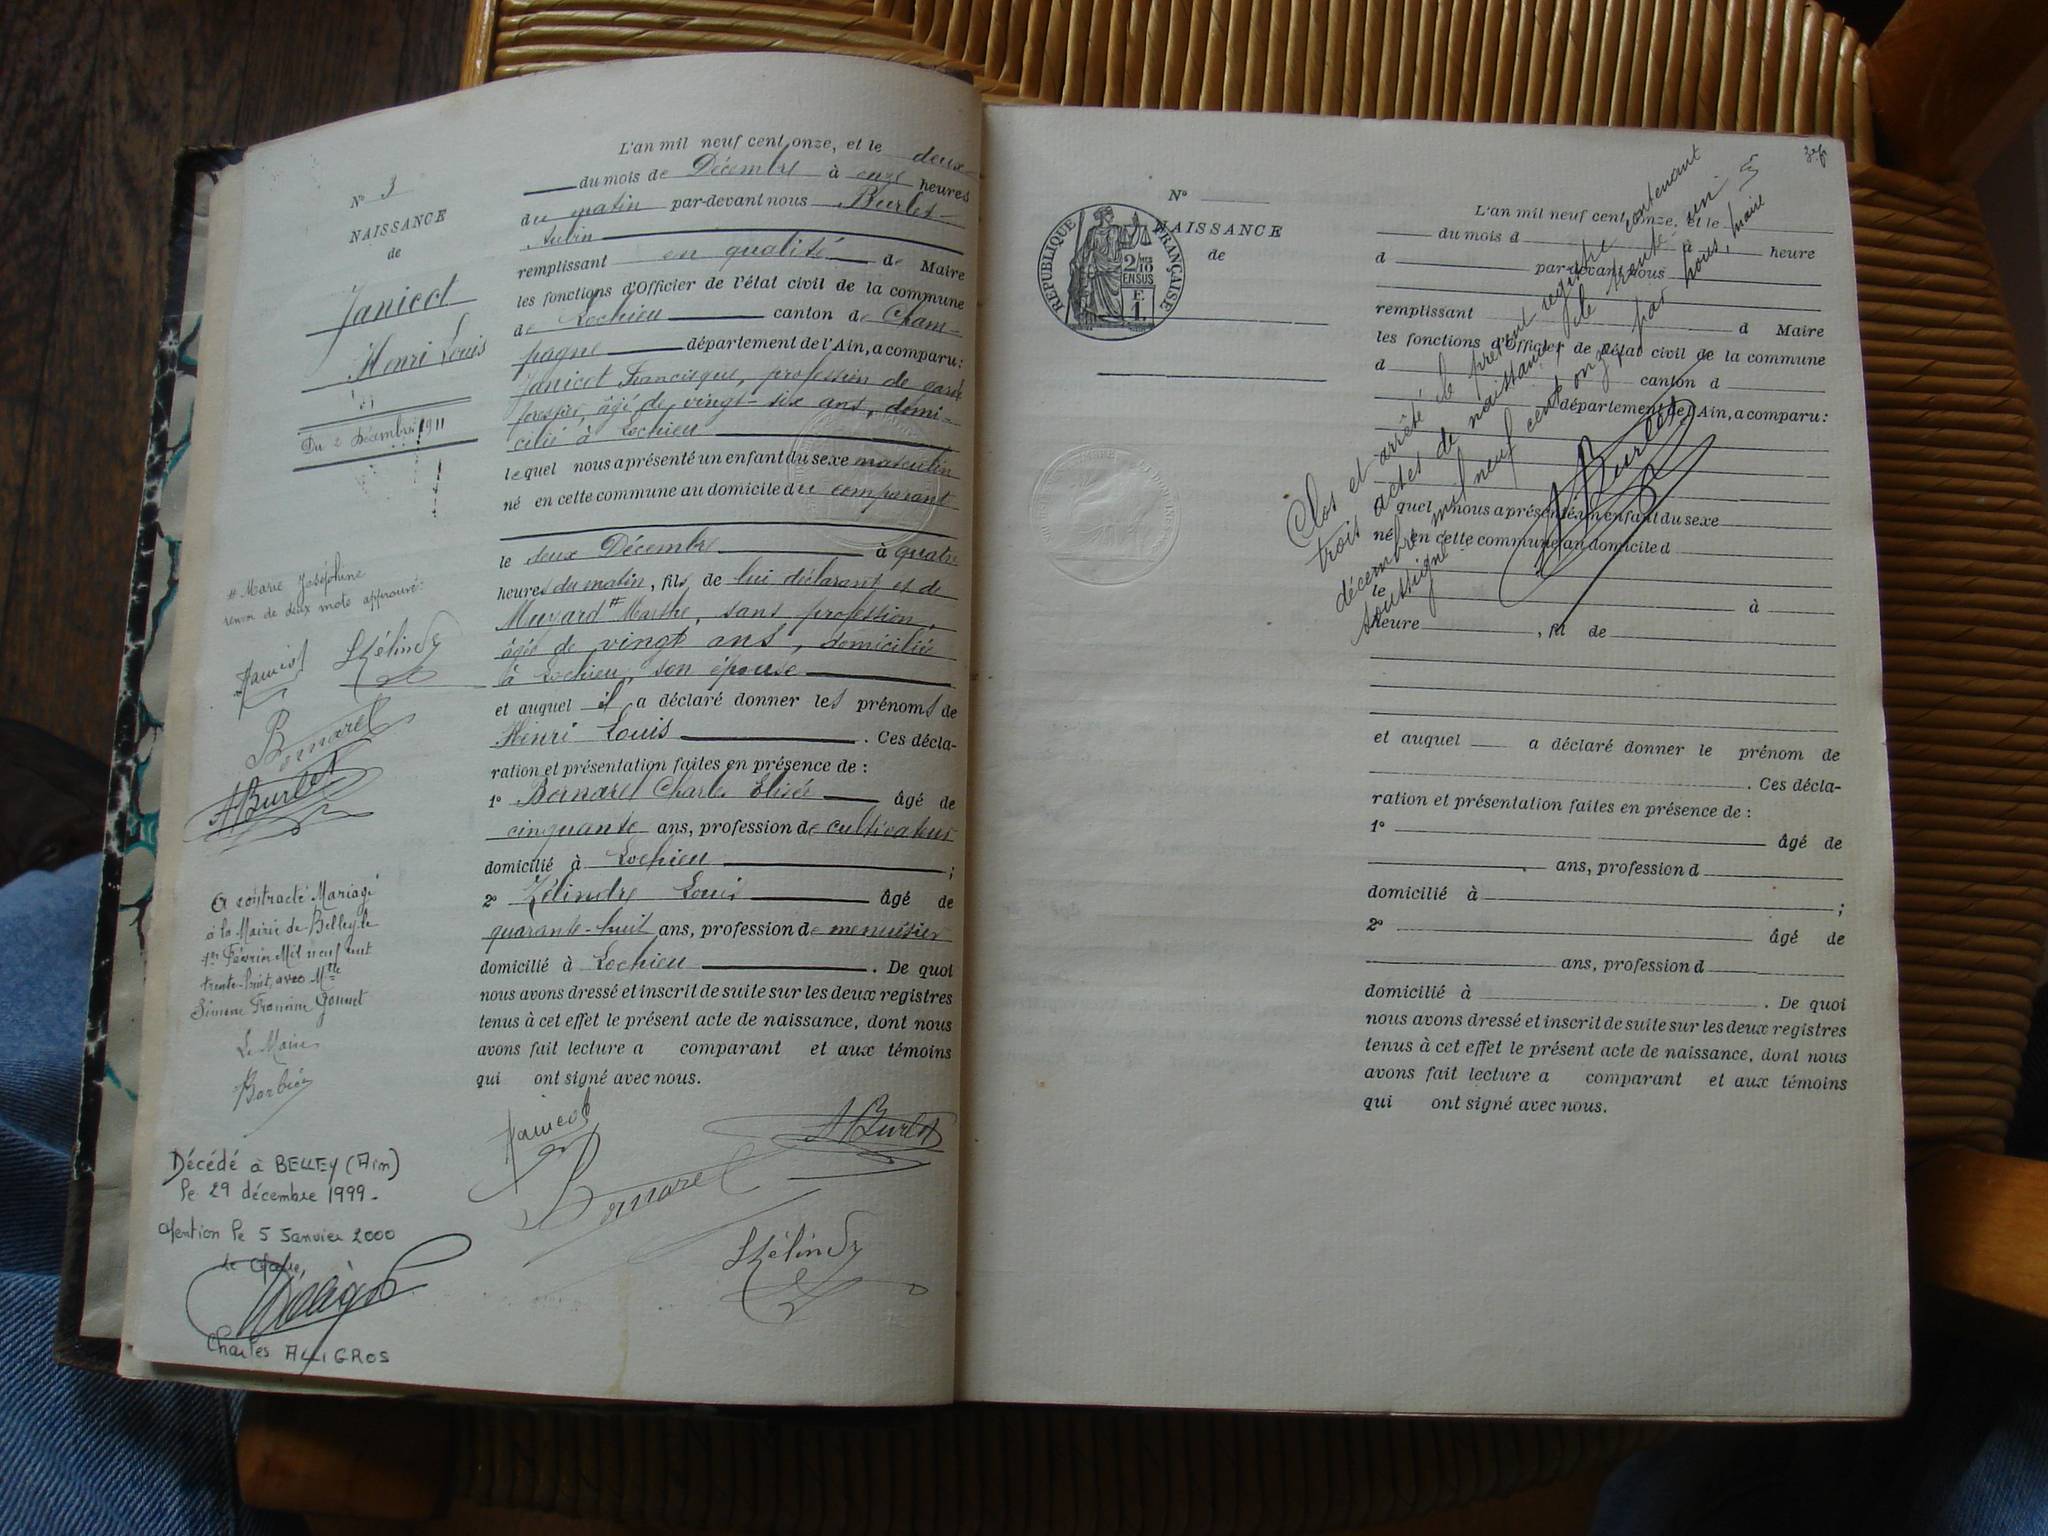 N° 3
NAISSANCE
de
Janicot
Henri Louis
Du 2 Décembre 1911
L'an mil neuf cent onze, et le deux
du mois de Décembre à onze heures
du matin par-devant nous Burlet
Aubin
remplissant en qualité de Maire
les fonctions d'Officier de l'état civil de la commune
de Lochieu canton de Cham-
pagne département de l'Ain, a comparu :
Janicot Francisque, profession de garde
forestier, âgé de vingt-six ans, domi-
cilié à Lochieu
lequel nous a présenté un enfant du sexe masculin
né en cette commune au domicile du comparant
le deux Décembre à quatre
heures du matin, fils de lui déclarant et de
Muzard # Marthe, sans profession,
âgée de vingt ans, domiciliée
à Lochieu, son épouse
et auquel il a déclaré donner les prénoms de
Henri Louis . Ces décla-
ration et présentation faites en présence de :
1° Bornarel Charles Elisée âgé de
cinquante ans, profession de cultivateur
domicilié à Lochieu ;
2° Zélindre Louis âgé de
quarante-huit ans, profession de menuisier
domicilié à Lochieu . De quoi
nous avons dressé et inscrit de suite sur les deux registres
tenus à cet effet le présent acte de naissance, dont nous
avons fait lecture a comparant et aux témoins
qui ont signé avec nous.
Janicot
A Burlet
Bornarel
L Zélindre
# Marie Joséphine
renvoi de deux mots approuvé :
Janicot L Zélindre
Bornarel
A Burlet
A contracté Mariage
à la Mairie de Belley le
1er Février Mil neuf cent
trente-huit, avec Mlle
Simone Francine Gonnet
Le Maire
Barbier
Décédé à BELLEY (Ain)
le 29 décembre 1999.
Mention le 5 Janvier 2000
le Maire,
Charles ALLIGROS
N°
NAISSANCE
de
RÉPUBLIQUE FRANÇAISE
2/10
EN SUS
E
1.
L'an mil neuf cent onze, et le
du mois d à heure
d par-devant nous
remplissant d Maire
les fonctions d'Officier de l'état civil de la commune
d canton d
département de l'Ain, a comparu :
quel nous a présenté un enfant du sexe
né en cette commune au domicile d
le à
heure , fil de
et auquel a déclaré donner le prénom de
. Ces décla-
ration et présentation faites en présence de :
1° âgé de
ans, profession d
domicilié à ;
2° âgé de
ans, profession d
domicilié à . De quoi
nous avons dressé et inscrit de suite sur les deux registres
tenus à cet effet le présent acte de naissance, dont nous
avons fait lecture a comparant et aux témoins
qui ont signé avec nous.
Clos et arrêté le présent registre contenant
trois actes de naissance, le trente un
décembre mil neuf cent onze par nous, maire
soussigné
A Burlet